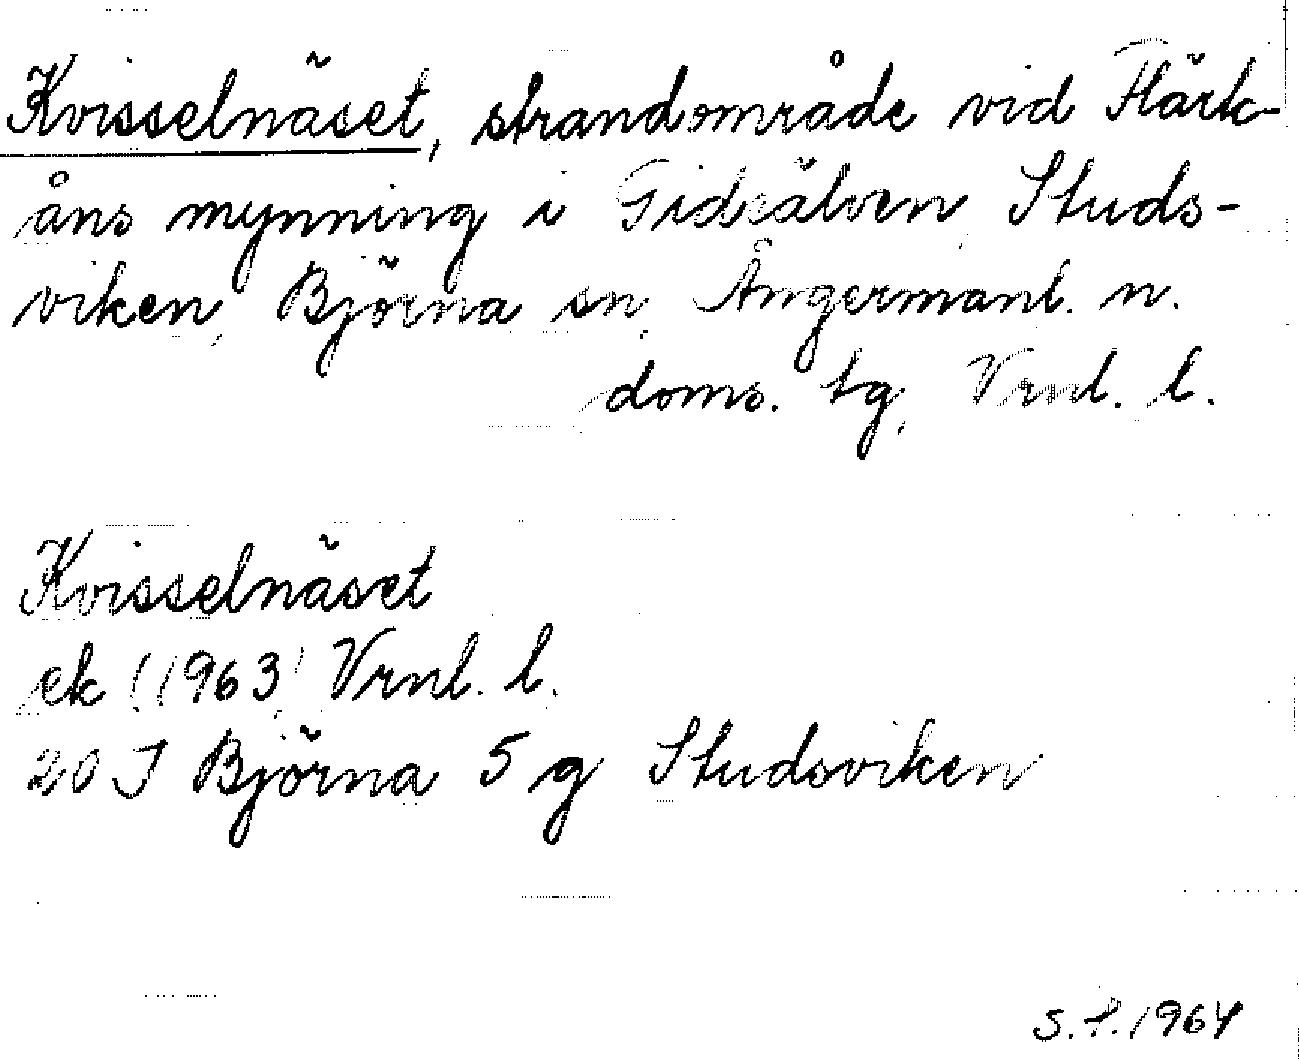 Kvisselnäset, strandområde vid Flärk-
åns mynning i Gideälven, Studs-
viken, Björna sn, Ångermanl. n.
doms. tg, Vrnl. l.
Kvisselnäset
ek (1963) Vrnl. l.
20 J Björna 5 g Studsviken
S.F. 1964